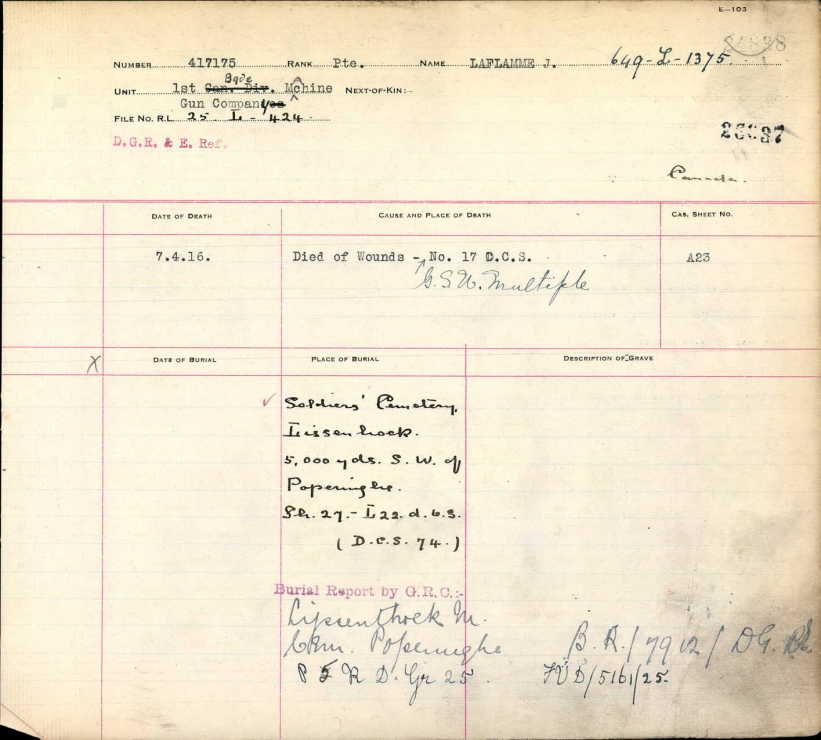 E-103
24828
NUMBER 417175 RANK Pte. NAME LAFLAMME J. 649-L-1375.
Bgde
UNIT 1st Can. Div. Mchine NEXT-OF-KIN:-
Gun Companyies
FILE NO. R.L. 25 L-424
D.G.R. & E. Ref.
26687
Canada.
DATE OF DEATH CAUSE AND PLACE OF DEATH CAS. SHEET NO.
7.4.16. Died of Wounds - No. 17 C.C.S. A23
G.S.W. Multiple
X DATE OF BURIAL PLACE OF BURIAL DESCRIPTION OF GRAVE
✓ Soldiers' Cemetery,
Lissenhock.
5,000 yds. S. W. of
Poperinghe.
Sh. 27.- L 22. d. 6.3.
(D.C.S. 74.)
Burial Report by G.R.C:-
Lijssenthoek M.
Cem. Poperinghe B.R./7912/DG.
P 5 R D. Gr 25. FVD/5161/25.